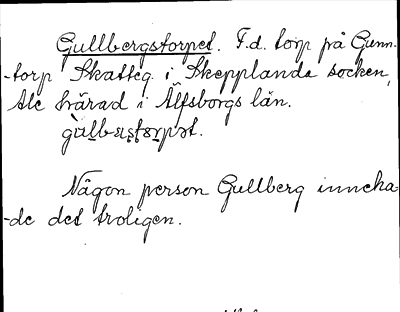 Gullbergstorpet. F.d. torp på Gunn-
-torp Skatteg. i Skepplanda socken,
Ale härad i Älfsborgs län.
Någon person Gullberg inneha-
-de det troligen.